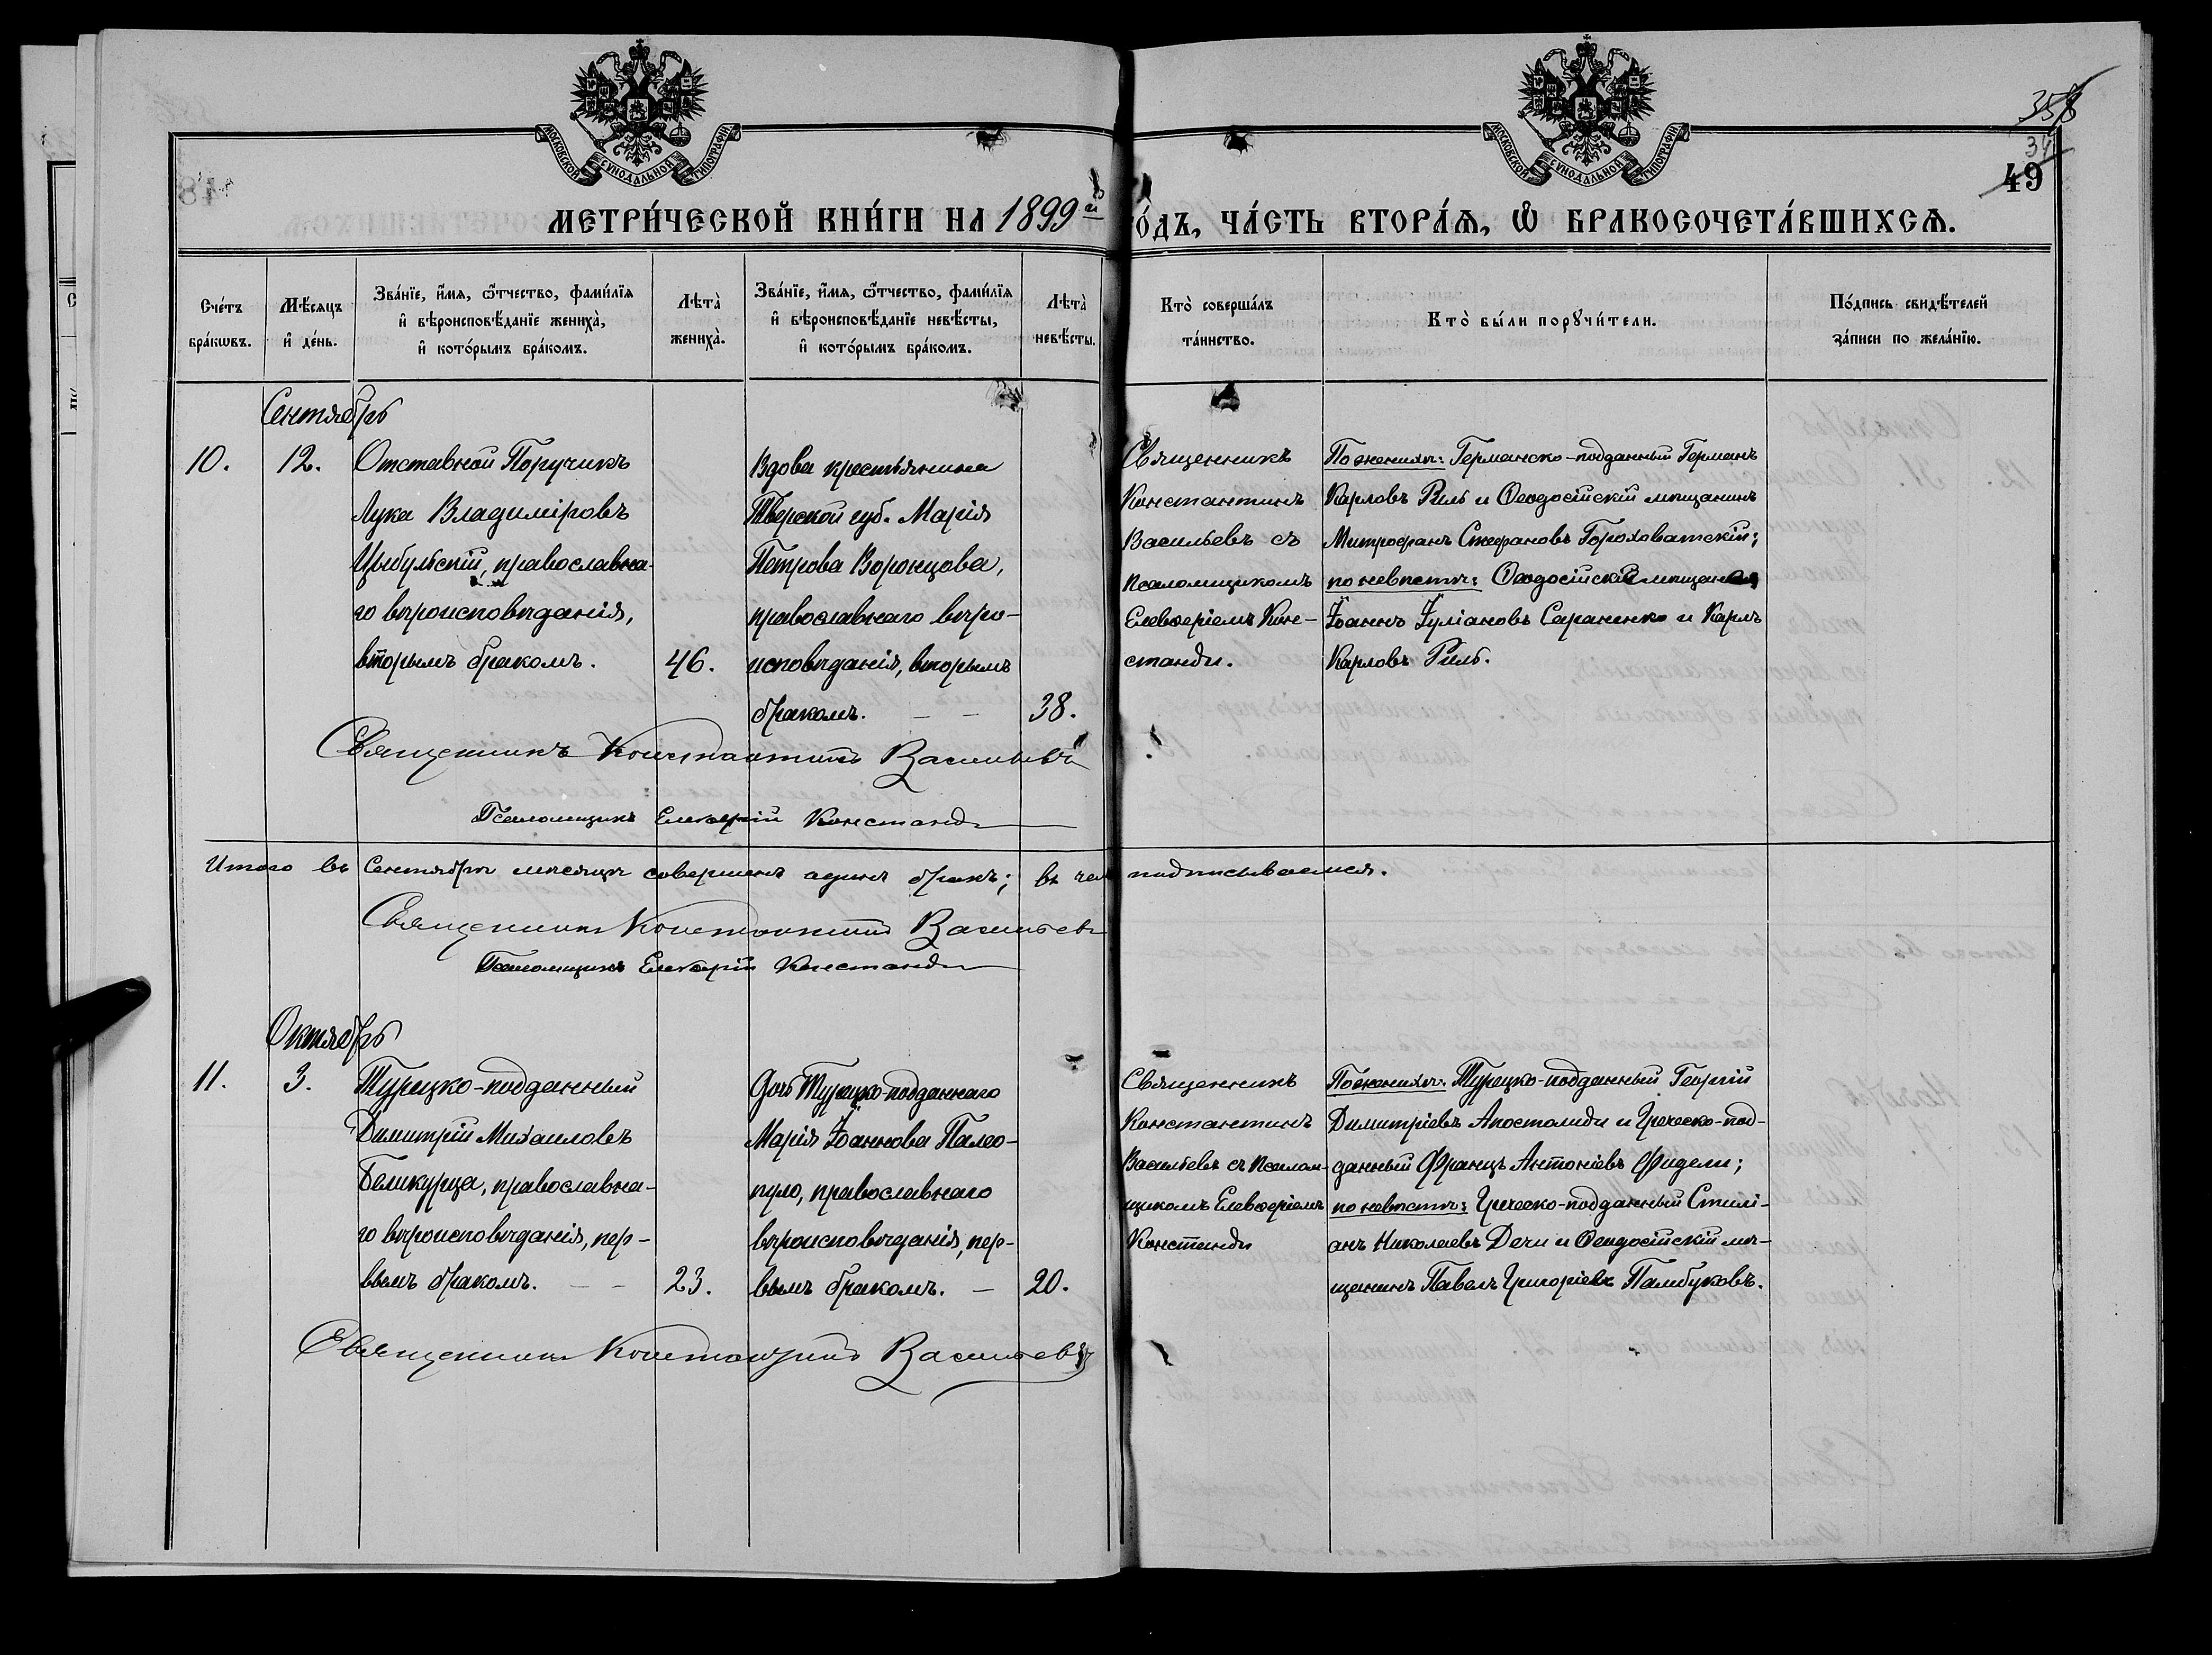 МОСКОВСКОЙ СѴНОДАЛЬНОЙ ТИПОГРАФІИ
МОСКОВСКОЙ СѴНОДАЛЬНОЙ ТИПОГРАФІИ
34
49
МЕТРИ́ЧЕСКОЙ КНИ́ГИ НА 1899й ГО́ДЪ, ЧА́СТЬ ВТОРА́Ѧ, Ѡ҆ БРАКОСОЧЕТА́ВШИХСѦ.
Сче́тъ бра́кѡвъ.
Мѣ́сѧцъ и҆ де́нь.
Зва́нїе, и҆́мѧ, ѻ҆́тчество, фами́лїѧ и҆ вѣроисповѣ́данїе жениха̀, и҆ кото́рымъ бра́комъ.
Лѣта̀ жениха̀.
Зва́нїе, и҆́мѧ, ѻ҆́тчество, фами́лїѧ и҆ вѣроисповѣ́данїе невѣ́сты, и҆ кото́рымъ бра́комъ.
Лѣта̀ невѣ́сты.
Кто̀ соверша́лъ та́инство.
Кто̀ бы́ли порꙋчи́тели.
По́дпись свидѣ́телей за́писи по жела́нїю.
Сентябрь
10.
12.
Отставной Поручикъ
Лука Владиміровъ
Цыбульскій, православна-
го вѣроисповѣданія,
вторымъ бракомъ.
46.
Вдова крестьянина
Тверской губ. Марія
Петрова Воронцова,
православнаго вѣро-
исповѣданія, вторымъ
бракомъ. — —
38.
Священникъ
Константинъ
Васильевъ съ
псаломщикомъ
Елевѳеріемъ Кон-
станди.
По женихѣ: Германско-подданный Германъ
Карловъ Риль и Ѳеодосійскій мѣщанинъ
Митрофанъ Стефановъ Гороховатскій;
по невѣстѣ: Ѳеодосійскій мѣщанинъ
Іоаннъ Іуліановъ Сараненко и Карлъ
Карловъ Риль.
Священникъ Константинъ Васильевъ
Псаломщикъ Елевѳерій Констанди
Итого въ Сентябрѣ мѣсяцѣ совершенъ одинъ бракъ; въ чемъ подписываемся.
Священникъ Константинъ Васильевъ
Псаломщикъ Елевѳерій Констанди
Октябрь
11.
3.
Турецко-подданный
Димитрій Михаиловъ
Беликурца, православна-
го вѣроисповѣданія, пер-
вымъ бракомъ. — —
23.
Дочь Турецко-подданнаго
Марія Іоаннова Палео-
пуло, православнаго
вѣроисповѣданія, пер-
вымъ бракомъ. —
20.
Священникъ
Константинъ
Васильевъ съ псалом-
щикомъ Елевѳеріемъ
Констанди
По женихѣ: Турецко-подданный Георгій
Димитріевъ Апостолиди и Греческо-под-
данный Францъ Антоніевъ Фидели;
по невѣстѣ: Греческо-подданный Стилі-
анъ Николаевъ Дечи и Ѳеодосійскій мѣ-
щанинъ Павелъ Григоріевъ Памбуковъ.
Священникъ Константинъ Васильевъ